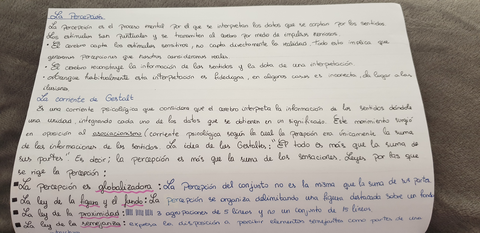 La Percepción.
La percepción es el proceso mental por el que se interpretan los datos que se captan por los sentidos.
Los estímulos son puntuales y se transmiten al cerebro por medio de impulsos nerviosos.
• El cerebro capta los estímulos sensitivos, no capta directamente la realidad. Todo esto implica que
generamos percepciones que nosotros consideramos reales.
• El cerebro reconstruye la información de los sentidos y la dota de una interpretación.
• Aunque habitualmente esta interpretación es fidedigna, en algunos casos es incorrecta, da lugar a las
ilusiones.
La corriente de Gestalt
Es una corriente psicológica que considera que el cerebro interpreta la información de los sentidos dándole
una unidad, integrando cada uno de los datos que se obtienen en un significado. Este movimiento surgió
en oposición al asociacionismo (corriente psicológica según la cual la percepción era únicamente la suma
de las informaciones de los sentidos. La idea de las Gestaltes: "El todo es más que la suma de
sus partes". Es decir, la percepción es más que la suma de las sensaciones. Leyes por las que
se rige la percepción:
La percepción es globalizadora: La percepción del conjunto no es la misma que la suma de sus partes.
La ley de la figura y el fondo: La percepción se organiza delimitando una figura destacada sobre un fondo
La ley de la proximidad: 3 agrupaciones de 5 líneas y no un conjunto de 15 líneas.
La ley de la semejanza: expresa la disposición a percibir elementos semejantes como partes de una